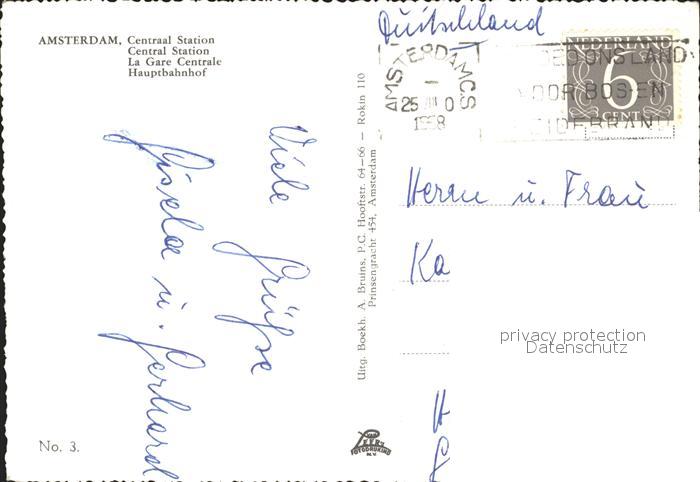 AMSTERDAM, Centraal Station
Central Station
La Gare Centrale
Hauptbahnhof
Viele Grüße
Gisela u. Gerhard
No. 3.
Uitg. Boekh. A. Bruins, P.C. Hooftstr. 64-66 — Rokin 110
Prinsengracht 454, Amsterdam
FOTODRUKINO
N.V.
Duitschland
AMSTERDAM C.S
25 III 0
1958
ONS LAND
VOOR BOS EN
HEIDEBRAND
NEDERLAND
6
CENT
Herrn u. Frau
Ka
H
privacy protection
Datenschutz